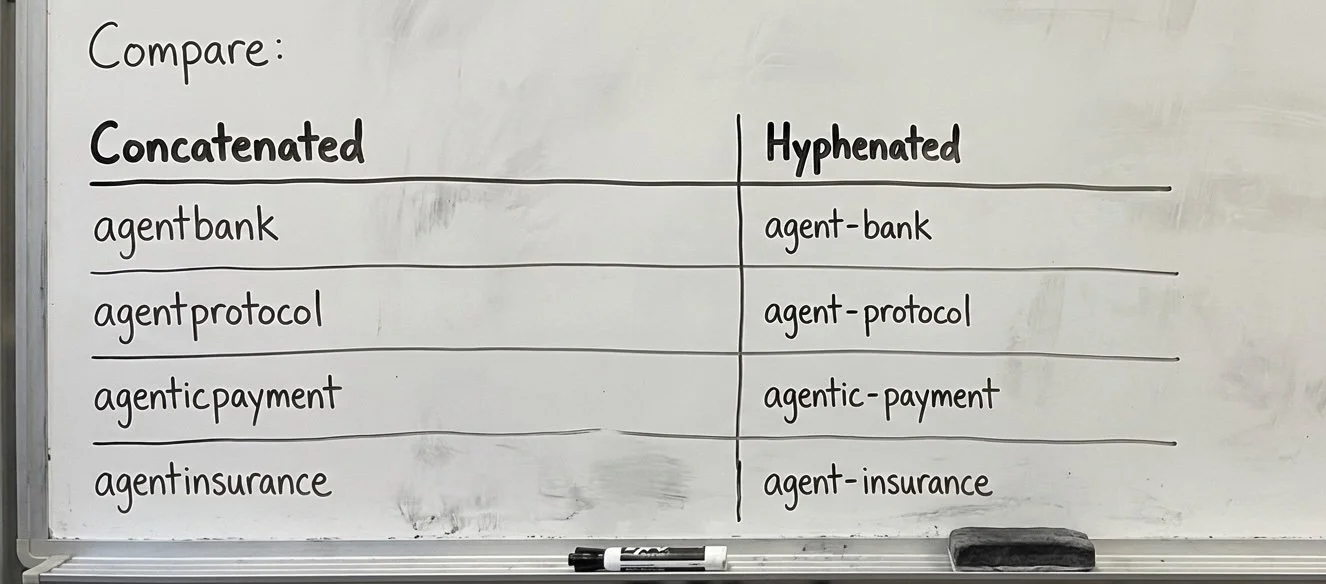 Compare:
Concatenated Hyphenated
agentbank agent-bank
agentprotocol agent-protocol
agenticpayment agentic-payment
agentinsurance agent-insurance